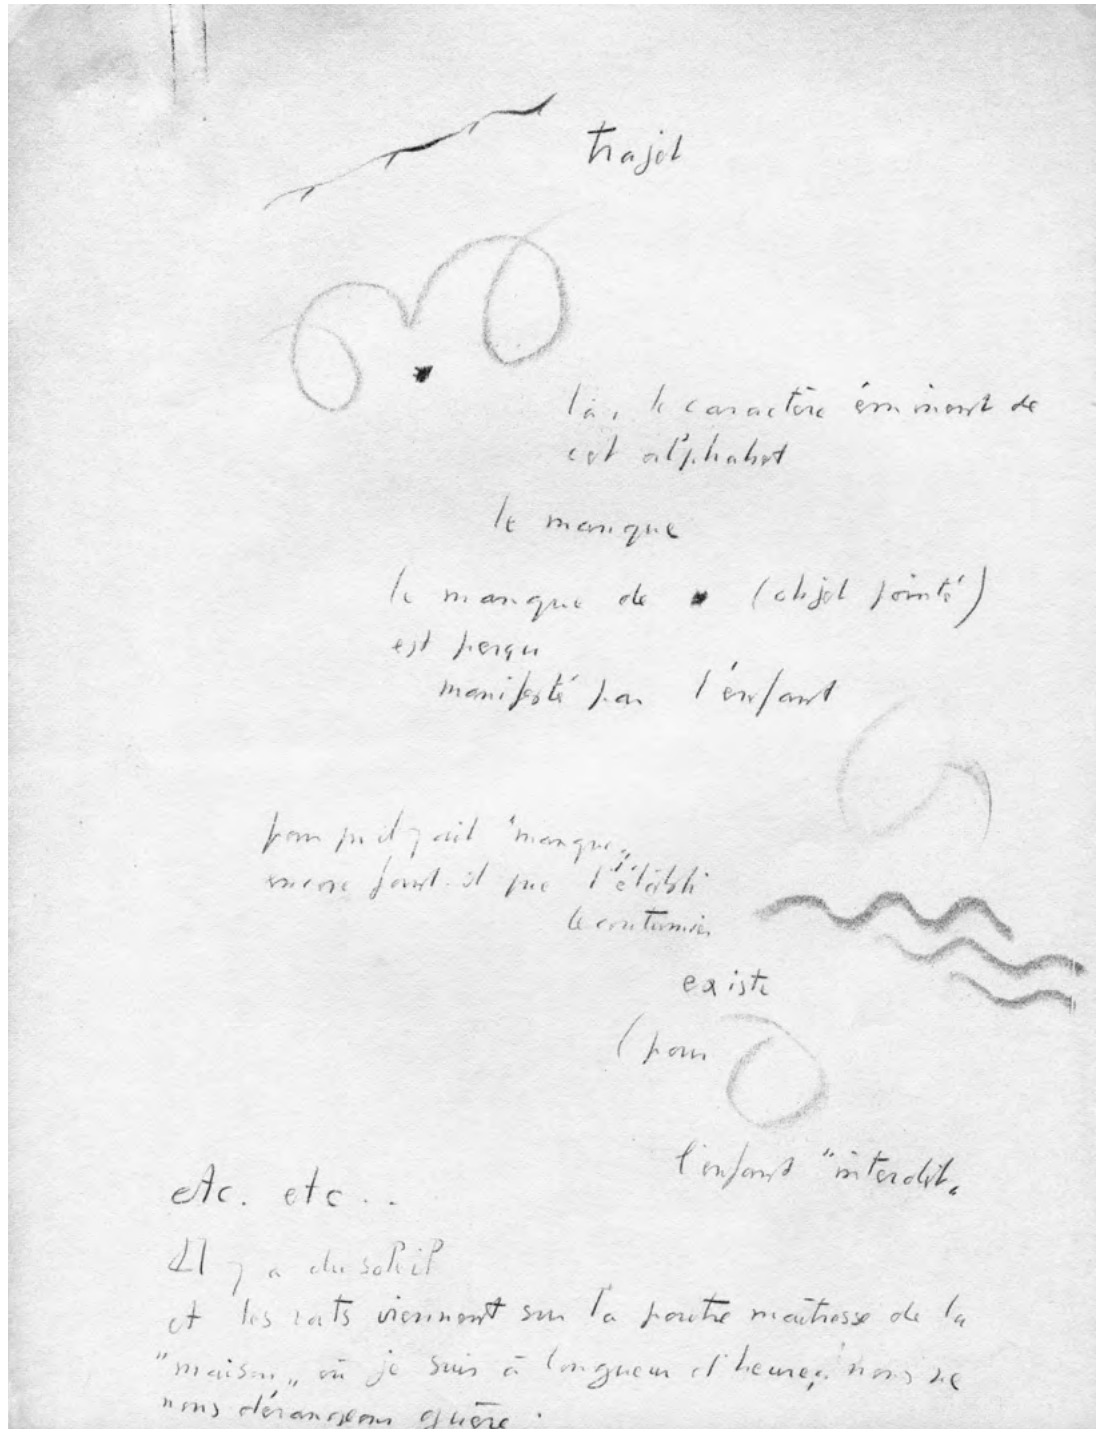 trajet
là, le caractère éminent de
cet alphabet
le manque
le manque de (objet pointé)
est perçu
manifesté par l'enfant
pour qu'il y ait "manque"
encore faut-il que l'établi
le coutumier
existe
(pour
l'enfant "interdit"
etc. etc..
Il y a du soleil
et les rats viennent sur la poutre maîtresse de la
"maison" où je suis à longueur d'heures, nous ne
nous dérangeons guère.